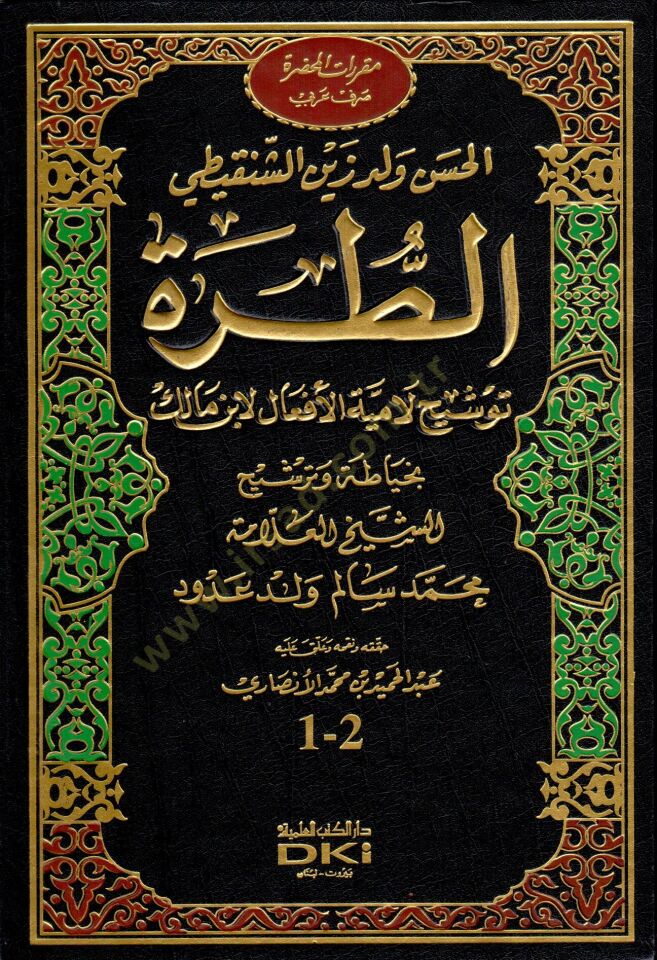 مقررات المحضرة
صرف عربي
الحسن ولد زين الشنقيطي
الطُّرة
توشيح لامية الأفعال لابن مالك
بخياطة وترشيح
الشيخ العلّامة
محمّد سالم ولد عدود
حققه ونقحه وعلق عليه
عبد الحميد بن محمد الأنصاري
1-2
دار الكتب العلمية
DKi
بيروت - لبنان
www.irsad.com.tr